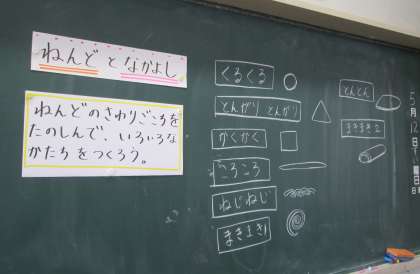 ねんどとなかよし
ねんどのさわりごこちを
たのしんで、いろいろな
かたちをつくろう。
くるくる
とんがりとんがり
かくかく
ころころ
ねじねじ
まきまき1
とんとん
まきまき2
5月12日
曜日